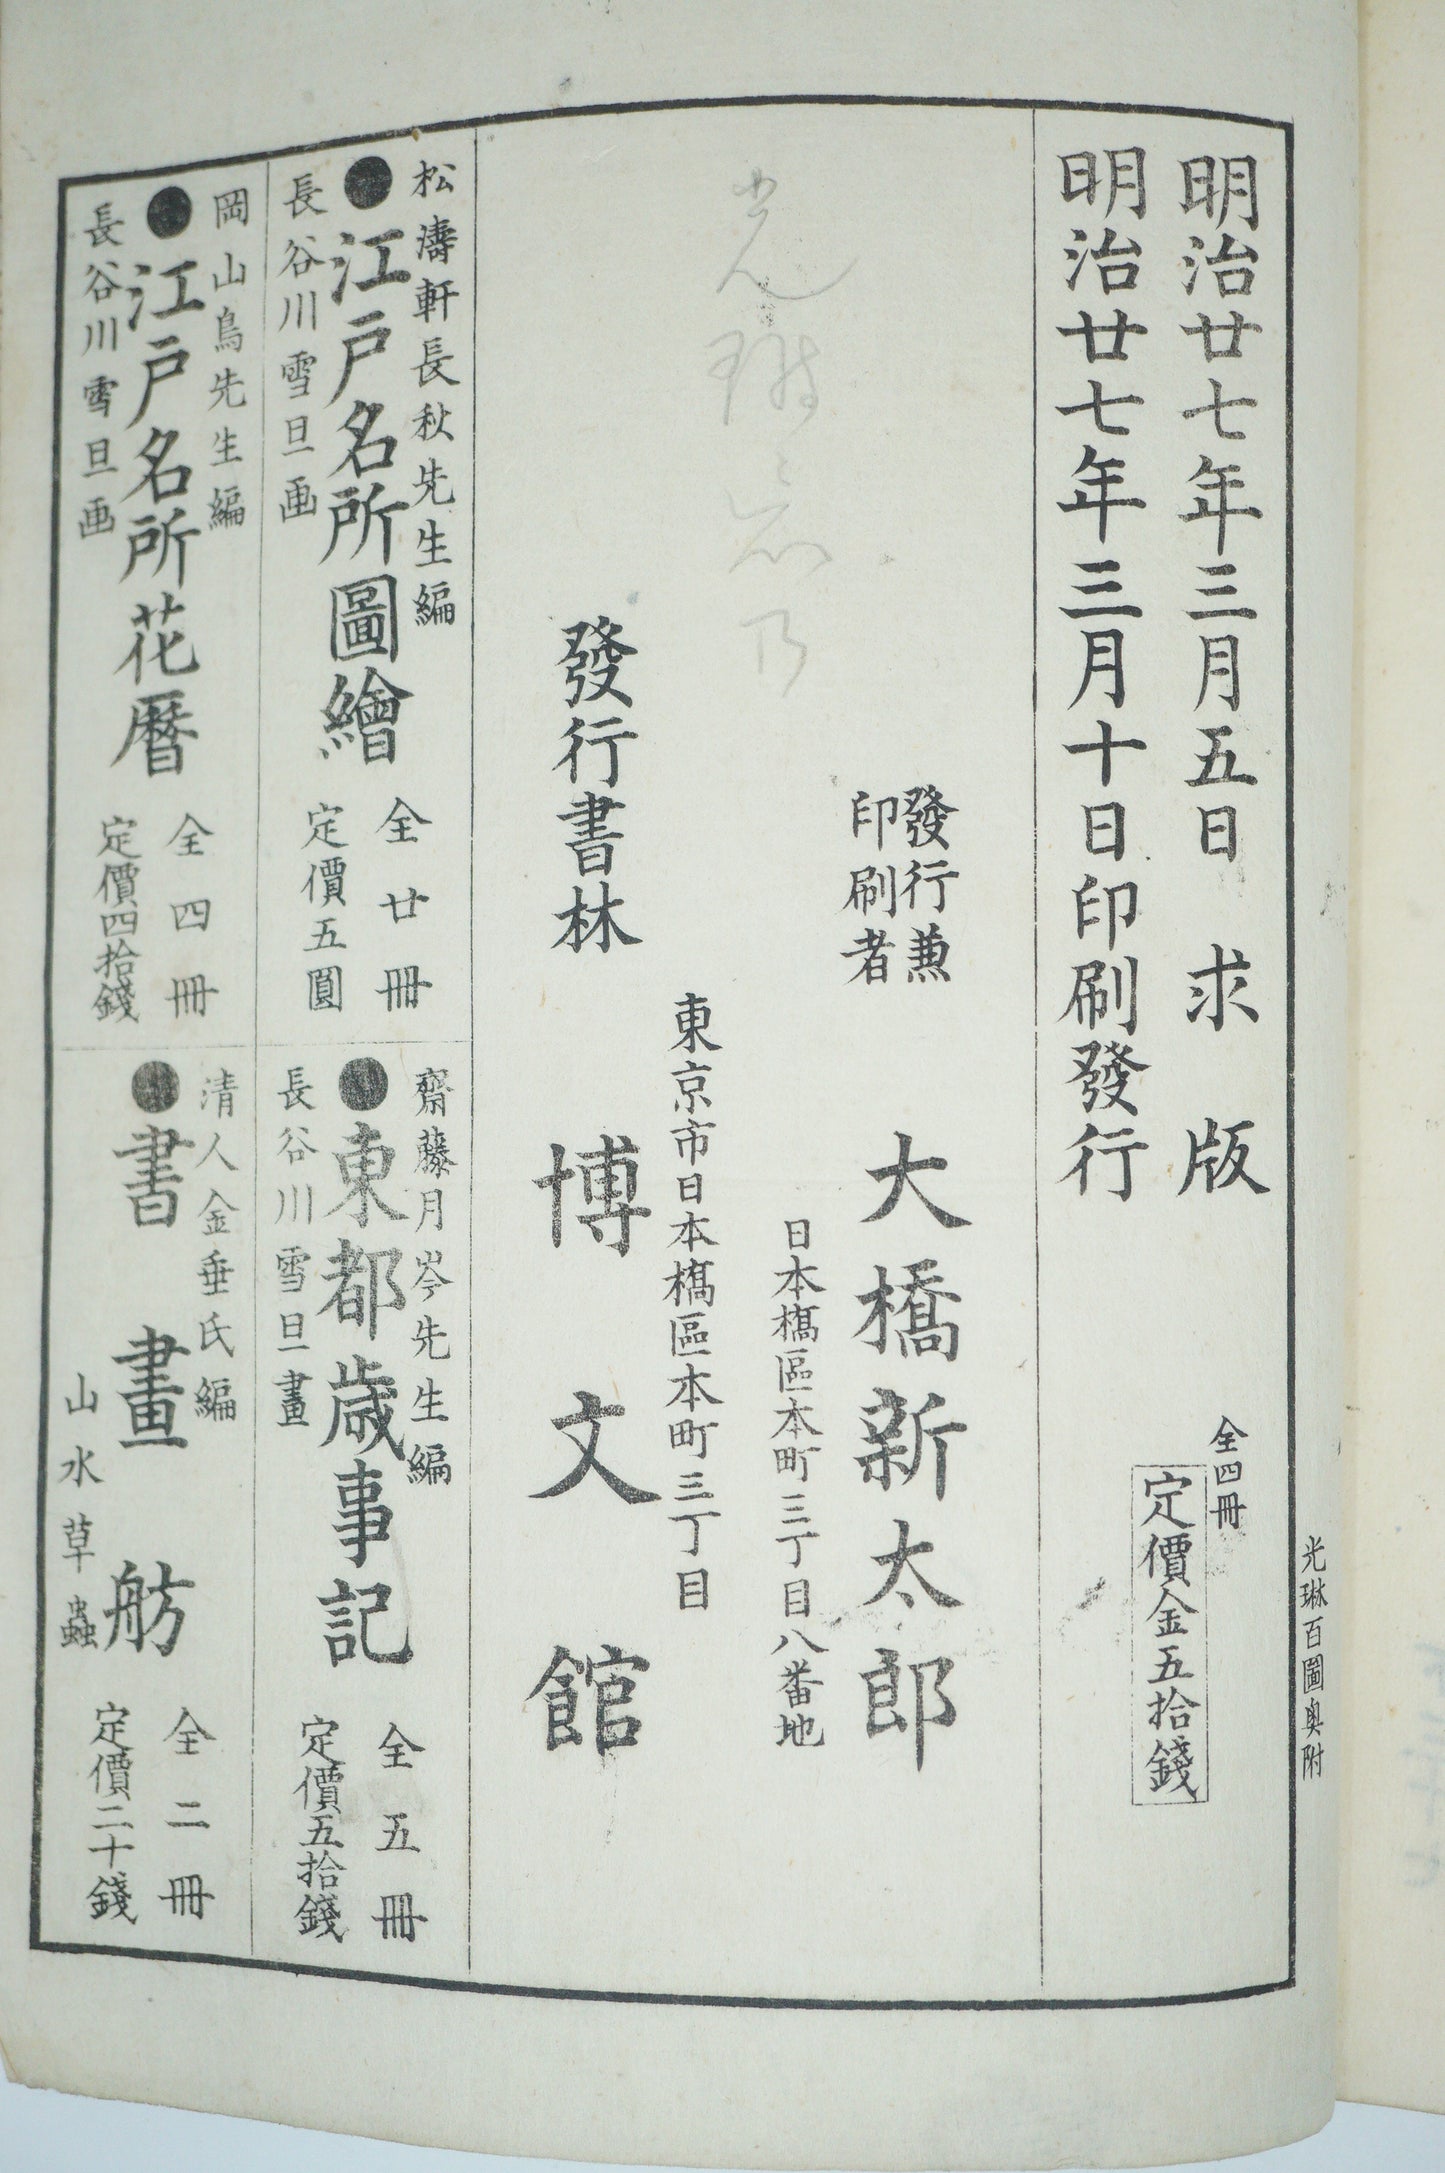 光琳百圖奥附
明治廿七年三月五日求版
明治廿七年三月十日印刷發行
全四冊
定價金五拾錢
發行兼
印刷者
大橋新太郎
日本橋區本町三丁目八番地
東京市日本橋區本町三丁目
發行書林
博文館
松濤軒長秋先生編
●江戸名所圖繪
長谷川雪旦画
全廿冊
定價五圓
齋藤月岑先生編
●東都歳事記
長谷川雪旦畫
全五冊
定價五拾錢
岡山鳥先生編
●江戸名所花暦
長谷川雪旦画
全四冊
定價四拾錢
清人金垂氏編
●書畫舫
山水草蟲
全二冊
定價二十錢